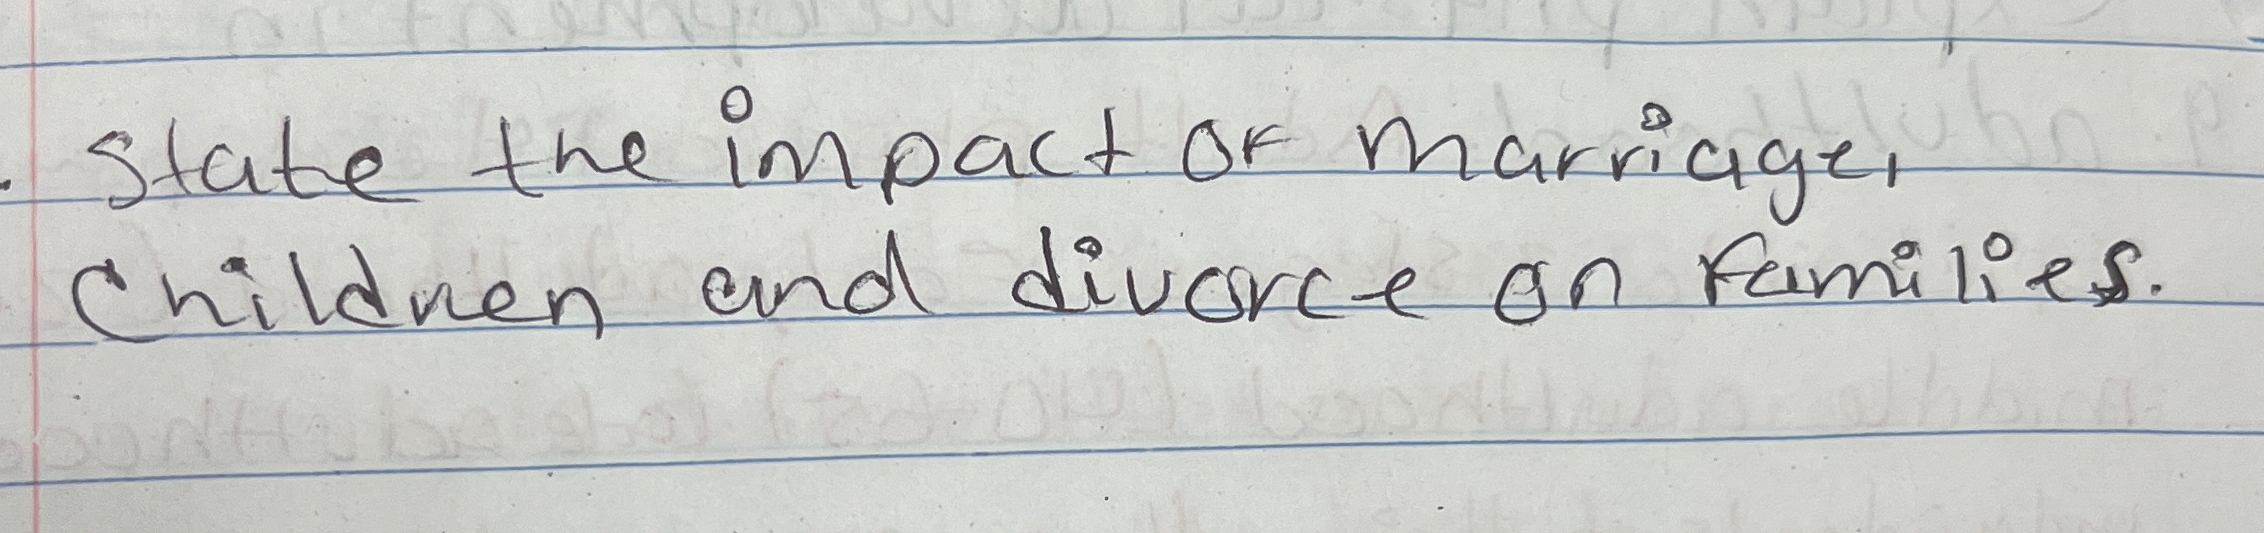 . State the impact of marriage,
Children and divorce on families.